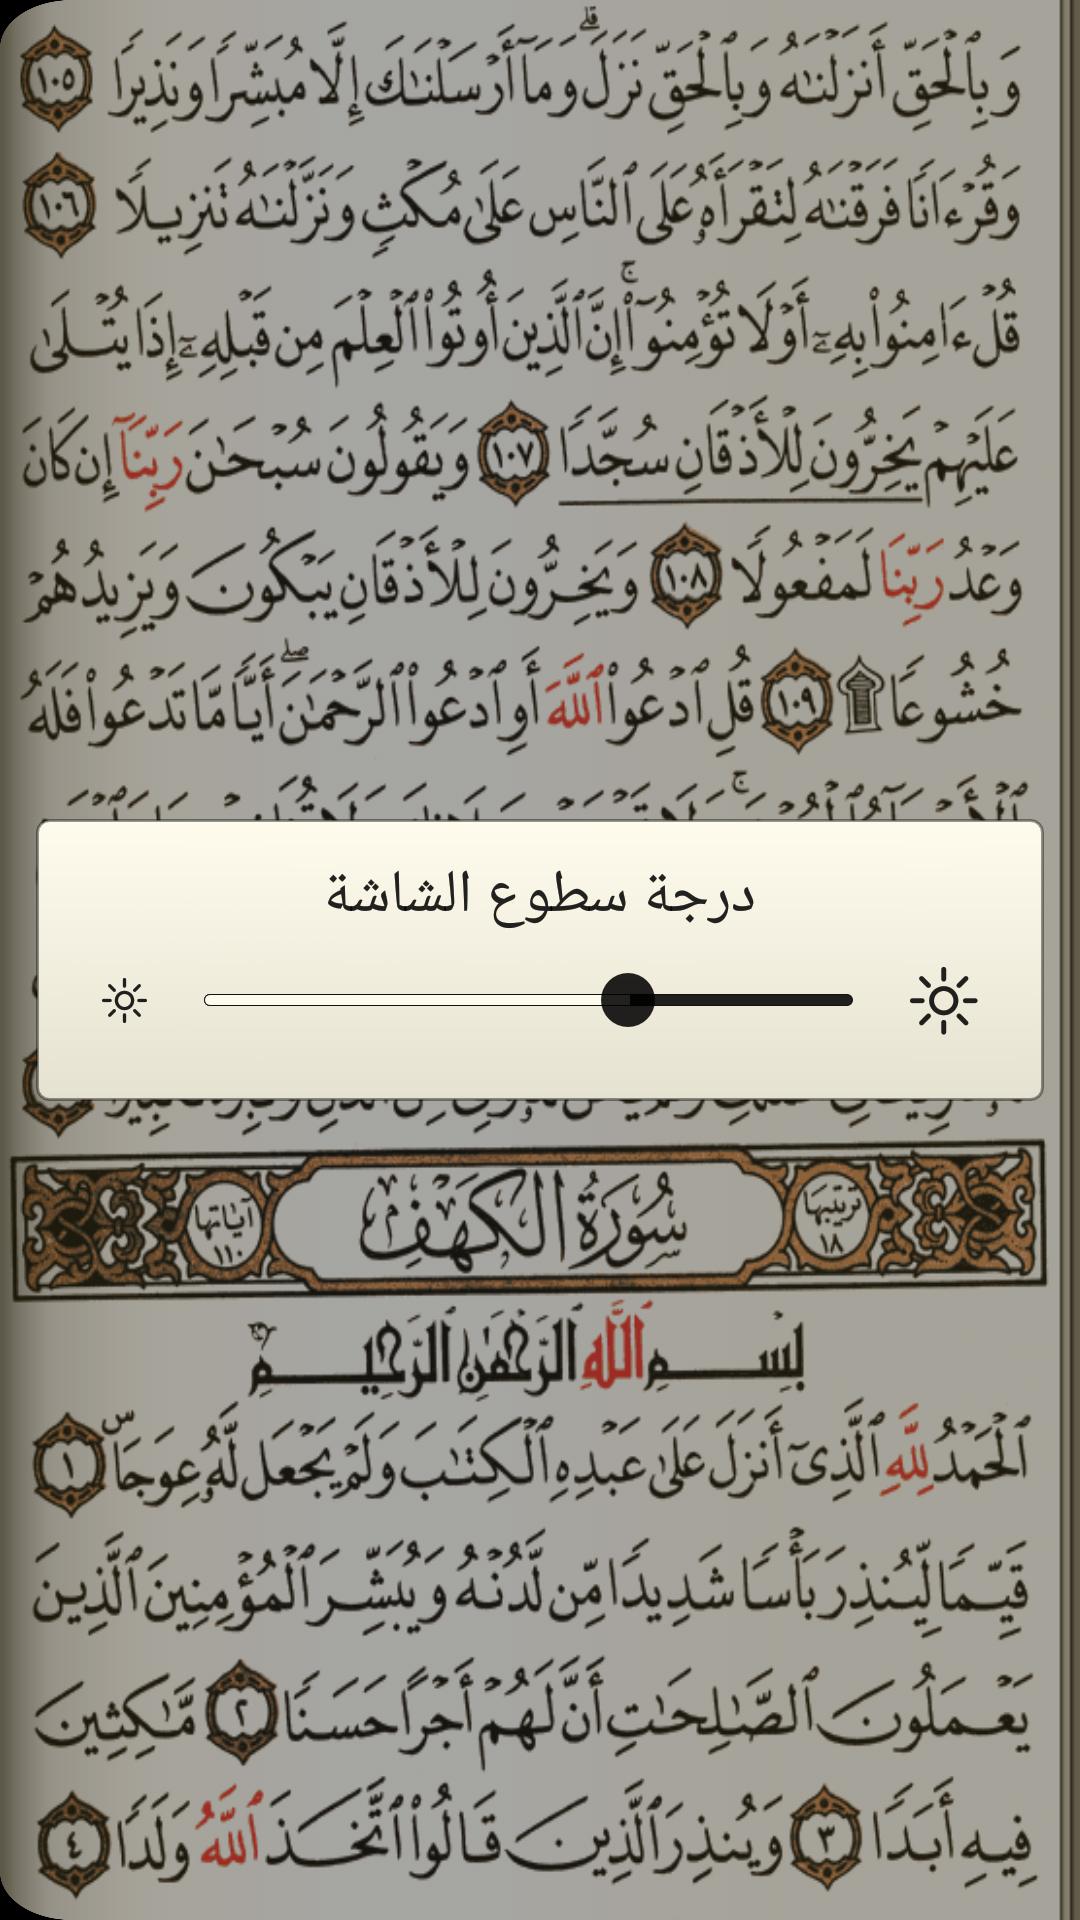 وَبِٱلْحَقِّ أَنزَلْنَـٰهُ وَبِٱلْحَقِّ نَزَلَ ۗ وَمَآ أَرْسَلْنَـٰكَ إِلَّا مُبَشِّرًا وَنَذِيرًا ١٠٥
وَقُرْءَانًا فَرَقْنَـٰهُ لِتَقْرَأَهُۥ عَلَى ٱلنَّاسِ عَلَىٰ مُكْثٍ وَنَزَّلْنَـٰهُ تَنزِيلًا ١٠٦
قُلْ ءَامِنُوا۟ بِهِۦٓ أَوْ لَا تُؤْمِنُوٓا۟ ۚ إِنَّ ٱلَّذِينَ أُوتُوا۟ ٱلْعِلْمَ مِن قَبْلِهِۦٓ إِذَا يُتْلَىٰ
عَلَيْهِمْ يَخِرُّونَ لِلْأَذْقَانِ سُجَّدًا ١٠٧ وَيَقُولُونَ سُبْحَـٰنَ رَبِّنَآ إِن كَانَ
وَعْدُ رَبِّنَا لَمَفْعُولًا ١٠٨ وَيَخِرُّونَ لِلْأَذْقَانِ يَبْكُونَ وَيَزِيدُهُمْ
خُشُوعًا ۩ ١٠٩ قُلِ ٱدْعُوا۟ ٱللَّهَ أَوِ ٱدْعُوا۟ ٱلرَّحْمَـٰنَ ۖ أَيًّا مَّا تَدْعُوا۟ فَلَهُ
درجة سطوع الشاشة
سُورَةُ الكَهْفِ
ترتيبها ١٨
آياتها ١١٠
بِسْمِ ٱللَّهِ ٱلرَّحْمَـٰنِ ٱلرَّحِيمِ
ٱلْحَمْدُ لِلَّهِ ٱلَّذِىٓ أَنزَلَ عَلَىٰ عَبْدِهِ ٱلْكِتَـٰبَ وَلَمْ يَجْعَل لَّهُۥ عِوَجَاۜ ١
قَيِّمًا لِّيُنذِرَ بَأْسًا شَدِيدًا مِّن لَّدُنْهُ وَيُبَشِّرَ ٱلْمُؤْمِنِينَ ٱلَّذِينَ
يَعْمَلُونَ ٱلصَّـٰلِحَـٰتِ أَنَّ لَهُمْ أَجْرًا حَسَنًا ٢ مَّـٰكِثِينَ
فِيهِ أَبَدًا ٣ وَيُنذِرَ ٱلَّذِينَ قَالُوا۟ ٱتَّخَذَ ٱللَّهُ وَلَدًا ٤